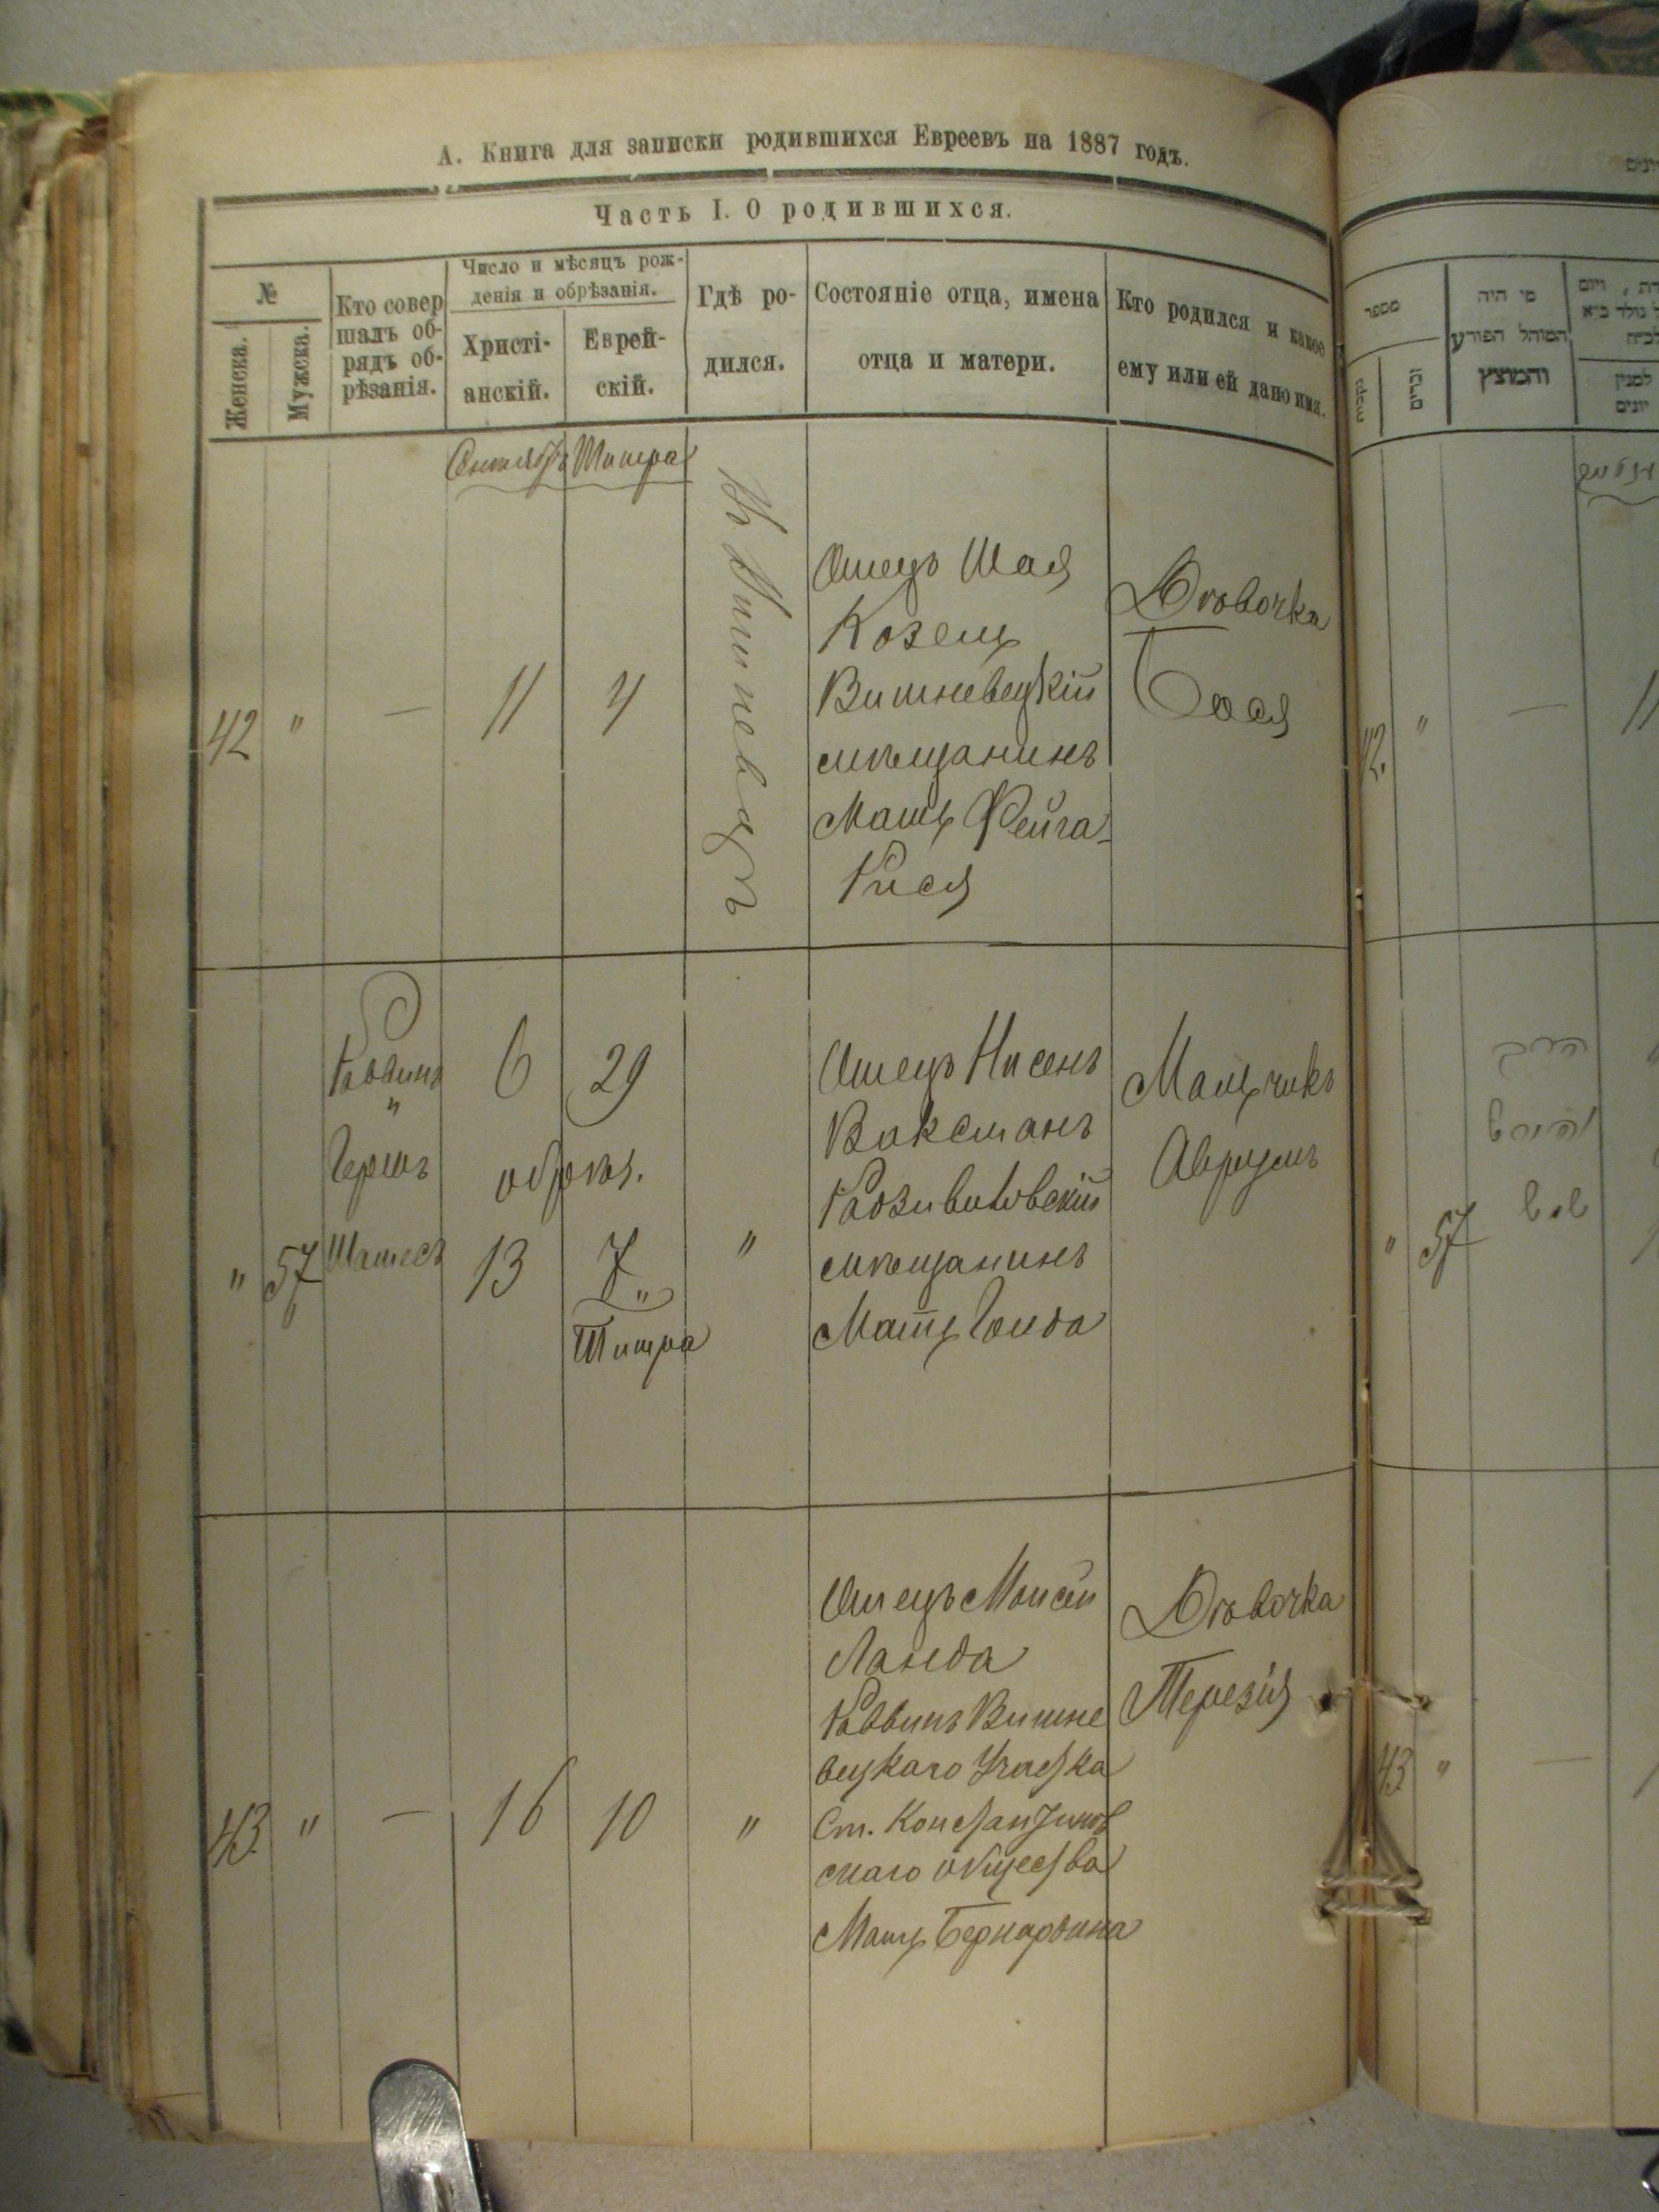 А. Книга для записки родившихся Евреевъ на 1887 годъ.
Часть I. О родившихся.
№
Женска.
Мужска.
Кто совер
шалъ об-
рядъ об-
рѣзанія.
Число и мѣсяцъ рож-
денія и обрѣзанія.
Христі-
анскій.
Еврей-
скій.
Гдѣ ро-
дился.
Состояніе отца, имена
отца и матери.
Кто родился и какое
ему или ей дано имя.
Сентябрь Тишра
42 " — 11 4
Въ Вишневцѣ
Отецъ Шая
Козелъ
Вишневецкій
мѣщанинъ
Мать Фейга-
Рися
Дѣвочка
Бася
" 57
Раввинъ
"
Гершъ
Шамесъ
6 29
обрѣз.
13 7 "
Тишра
"
Отецъ Нисенъ
Ваксманъ
Радзивиловскій
мѣщанинъ
Мать Голда
Мальчикъ
Аврумъ
43 " — 16 10 "
Отецъ Моисей
Ланда
Раввинъ Вишне
вецкаго Участка
Ст. Константинов
скаго общества
Мать Бернардина
Дѣвочка
Терезія
מספר
זכרים
מי היה
המוהל הפורע
והמוצץ
למנין
יונים
42. " — 11
" 57
הרב
43 " —